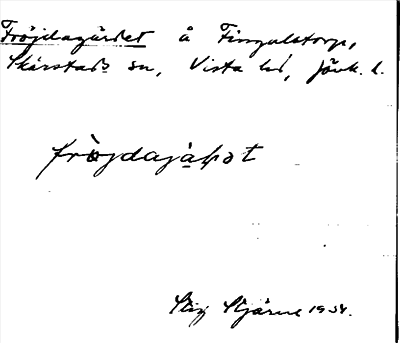 Fröjdagärdet å Fingalstorp,
Skärstads sn, Vista hd, Jönk. l.
fröjdajaḥət
Stig Stjärne 1934.